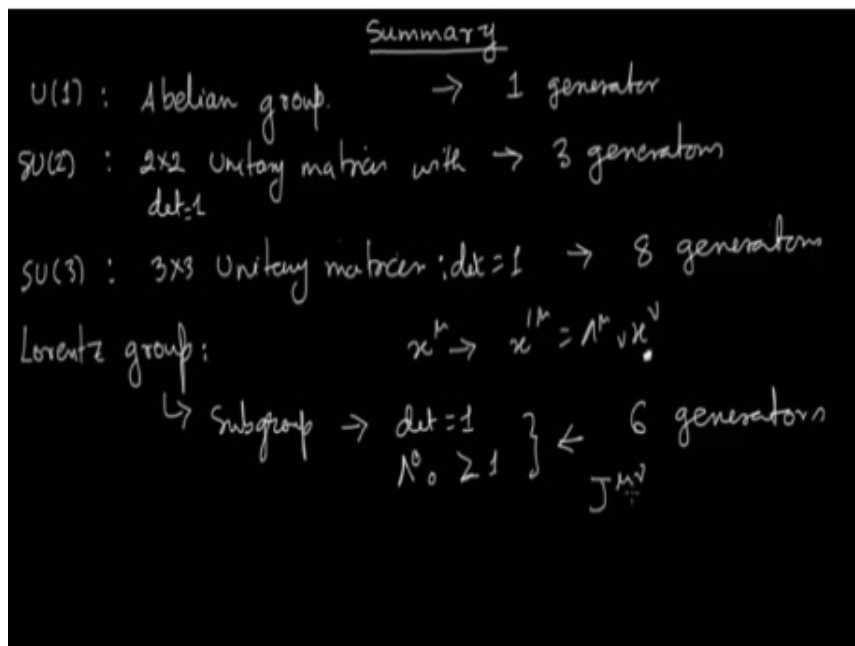 Summary
U(1) : Abelian group. → 1 generator
SU(2) : 2×2 Unitary matrices with → 3 generators
det=1
SU(3) : 3×3 Unitary matrices : det = 1 → 8 generators
Lorentz group : x^μ → x'^μ = Λ^μ_ν x^ν
↳ Subgroup → det = 1 } ← 6 generators
Λ^0_0 ≥ 1 J^μν